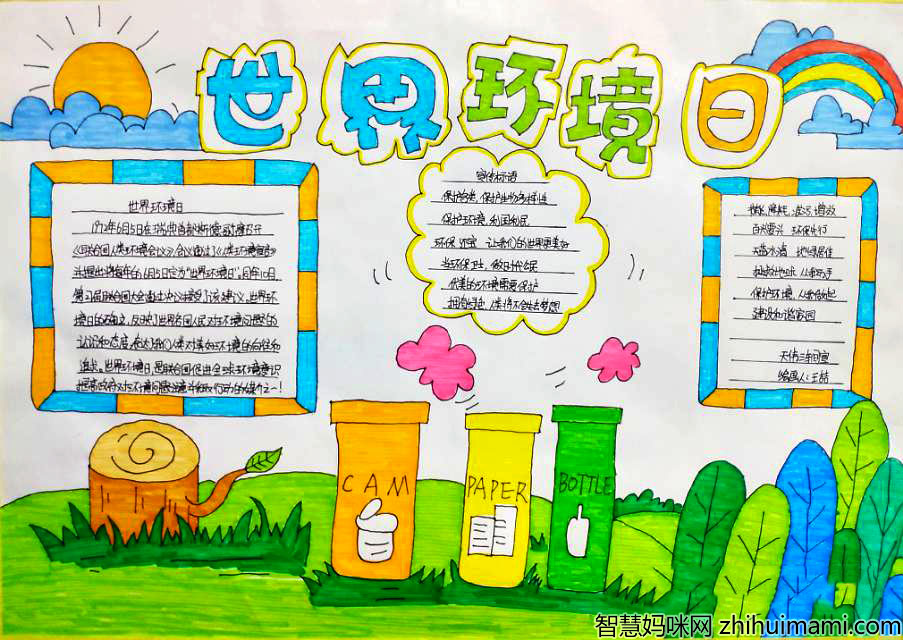 世界环境日
世界环境日
1972年6月5日在瑞典首都斯德哥尔摩召开
《联合国人类环境会议》会议通过了《人类环境宣言》
并提出将每年的6月5日定为"世界环境日"。同年10月
第27届联合国大会通过决议接受了该建议。世界环
境日的确立，反映了世界各国人民对环境问题的
认识和态度，表达了我们人类对美好环境的向往和
追求。世界环境日，是联合国促进全球环境意识
提高政府对环境问题的注意并采取行动的媒介之一！
宣传标语
保护自然，保护生物多样性
保护环境，利国利民
环保 让我们的世界更美好
当环保卫士，做时代公民
优美的环境需要保护
人类将不会失去梦想
低碳减排，绿
百姓 环保先行
天蓝水清 地绿居佳
扯 地球 人人有
保护环境，从我做起
建设和谐家园
CAM
PAPER
BOTTLE
智慧妈咪网 zhihuimami.com